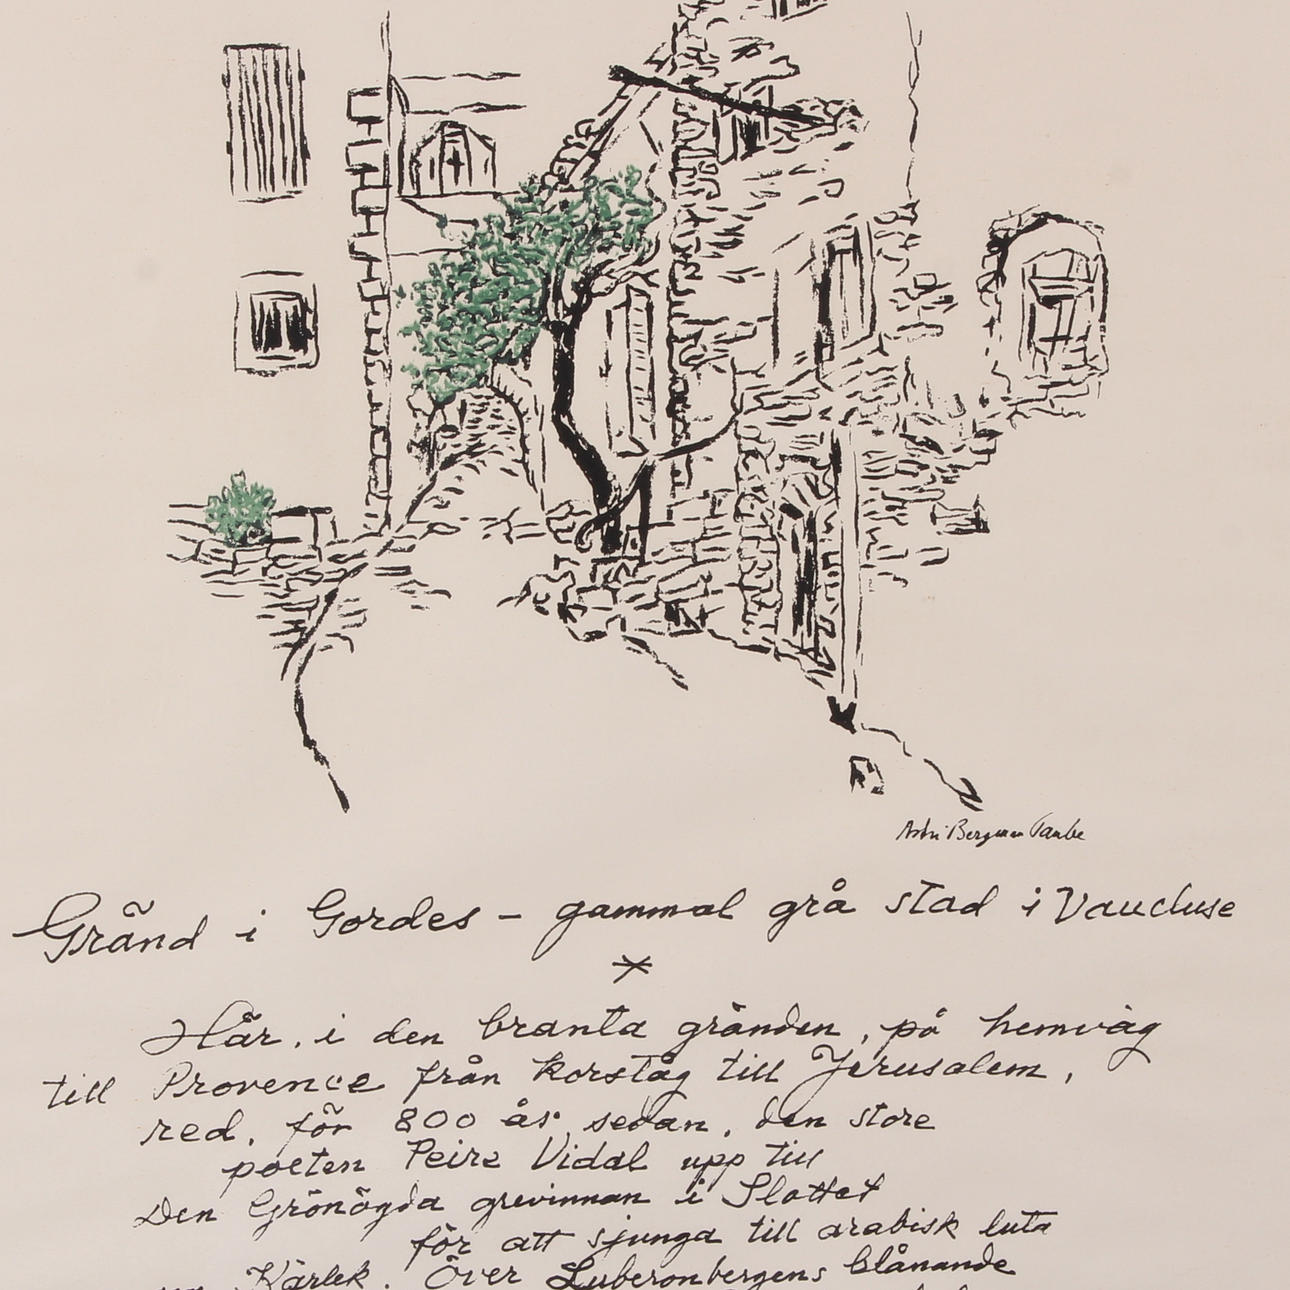 Astri Bergman Taube
Gränd i Gordes - gammal grå stad i Vaucluse
*
Här, i den branta gränden, på hemväg
till Provence från korståg till Jerusalem,
red, för 800 år sedan, den store
poeten Peire Vidal upp till
Den Grönögda grevinnan i Slottet
för att sjunga till arabisk luta
om Kärlek. Över Luberonbergens blånande